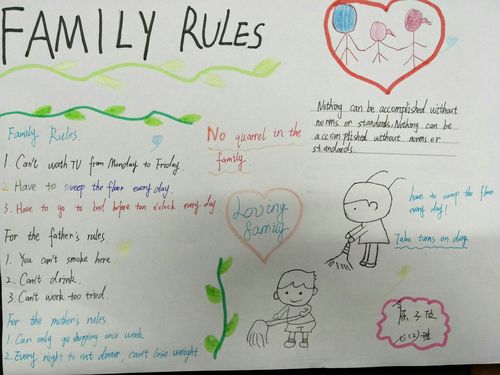 FAMILY RULES
Family Rules
1. Can't woth TV from Monday to Friday.
2. Have to sweep the floor every day.
3. Have to go to bed before ten o'clock every day.
For the father's rules.
1. You can't smoke here.
2. Can't drink.
3. Can't work too tried.
For the mother's rules.
1. Can only go shopping once week
2. Every night to eat dinner, can't lose weight
No quarrel in the
family.
Loving
family
Nothing can be accomplished without
norms or standards. Nothing can be
accomplished without norms or
standards.
have to sweep the floor
every day!
Take turns on day.
七(2)班